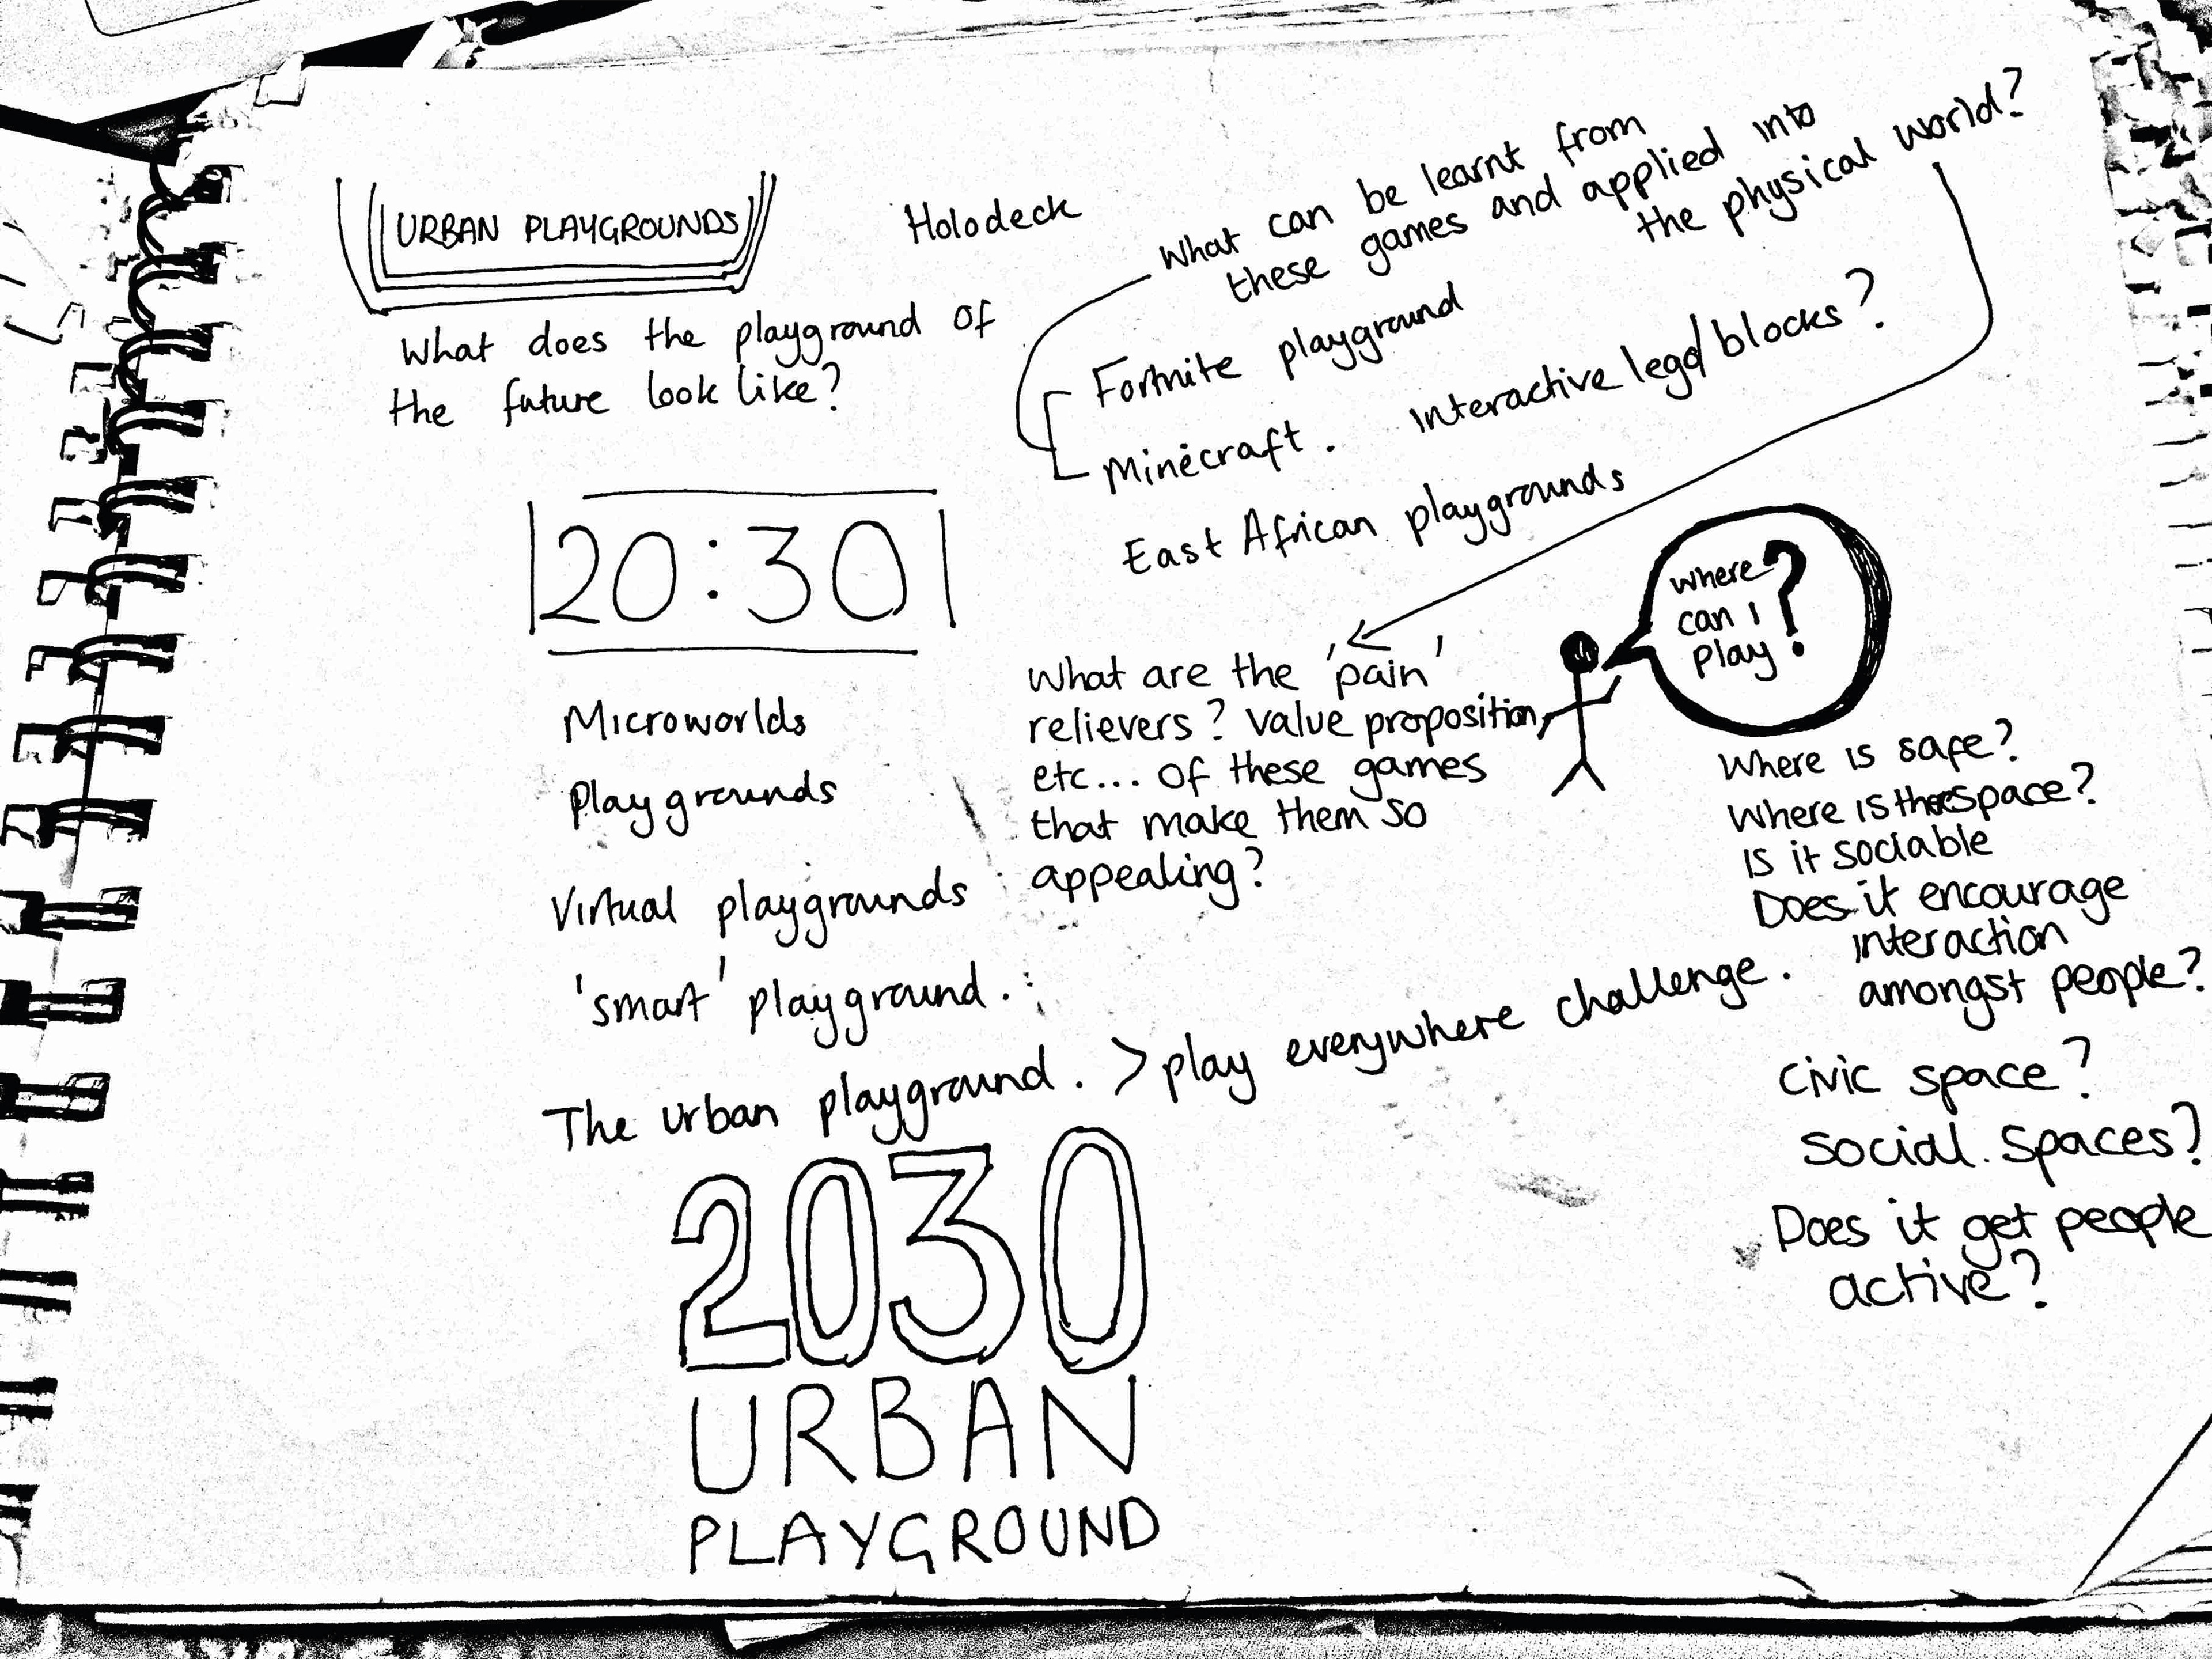 URBAN PLAYGROUNDS
What does the playground of
the future look like?
Holodeck
What can be learnt from
these games and applied into
the physical world?
Fortnite playground
Minecraft. interactive lego/blocks?
East African playgrounds
20:30
Microworlds
Playgrounds
Virtual playgrounds
'smart' playground.
The urban playground. > play everywhere challenge.
What are the 'pain'
relievers? value proposition,
etc... of these games
that make them so
appealing?
where
can I
play?
Where is safe?
Where is space?
Is it sociable
Does it encourage
interaction
amongst people?
Civic space?
Social. Spaces?
Does it get people
active?
2030
URBAN
PLAYGROUND